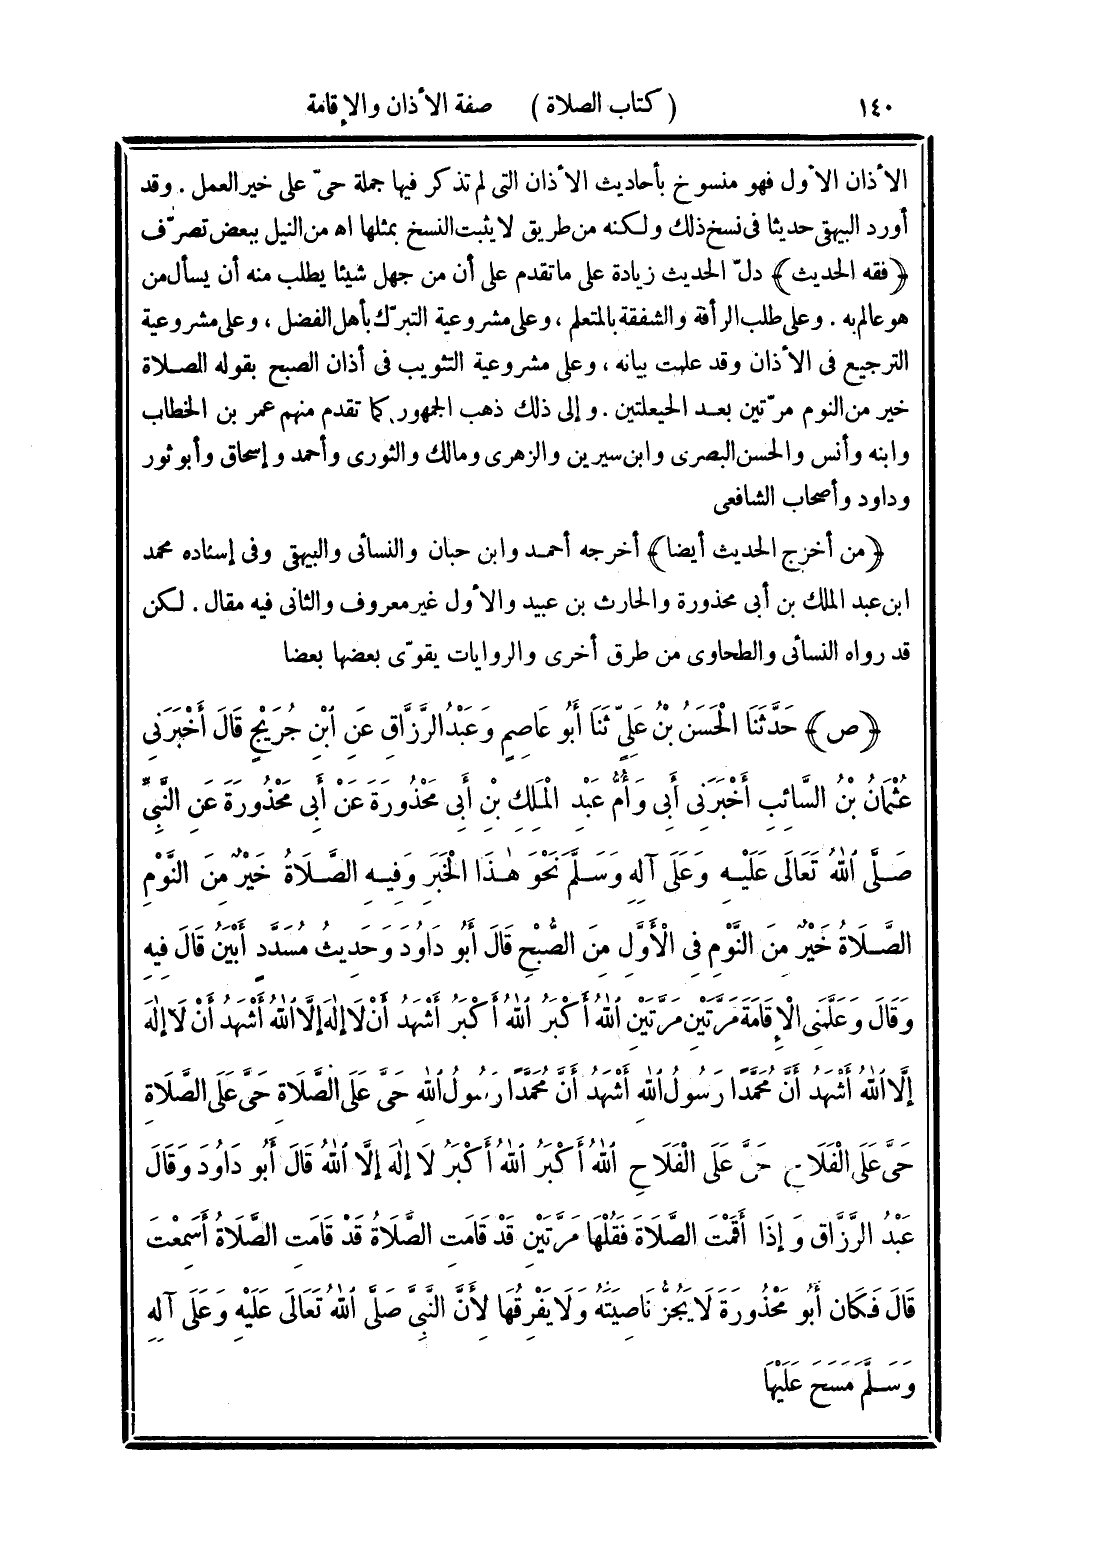 ١٤٠ (كتاب الصلاة) صفة الأذان والإقامة
الأذان الأول فهو منسوخ بأحاديث الأذان التى لم تذكر فيها جملة حىّ على خير العمل . وقد
أورد البيهقى حديثا فى نسخ ذلك ولكنه من طريق لا يثبت النسخ بمثلها اه من النيل ببعض تصرّف
﴿فقه الحديث﴾ دلّ الحديث زيادة على ما تقدم على أن من جهل شيئا يطلب منه أن يسأل من
هو عالم به . وعلى طلب الرأفة والشفقة بالمتعلم ، وعلى مشروعية التبرّك بأهل الفضل ، وعلى مشروعية
الترجيع فى الأذان وقد علمت بيانه ، وعلى مشروعية التثويب فى أذان الصبح بقوله الصلاة
خير من النوم مرّتين بعد الحيعلتين . وإلى ذلك ذهب الجمهور كما تقدم منهم عمر بن الخطاب
وابنه وأنس والحسن البصرى وابن سيرين والزهرى ومالك والثورى وأحمد وإسحاق وأبو ثور
وداود وأصحاب الشافعى
﴿من أخرج الحديث أيضا﴾ أخرجه أحمد وابن حبان والنسائى والبيهقى وفى إسناده محمد
ابن عبد الملك بن أبى محذورة والحارث بن عبيد والأول غير معروف والثانى فيه مقال . لكن
قد رواه النسائى والطحاوى من طرق أخرى والروايات يقوّى بعضها بعضا
﴿ص﴾ حَدَّثَنَا الْحَسَنُ بْنُ عَلِيٍّ ثَنَا أَبُو عَاصِمٍ وَعَبْدُ الرَّزَّاقِ عَنِ ٱبْنِ جُرَيْجٍ قَالَ أَخْبَرَنِى
عُثْمَانُ بْنُ السَّائِبِ أَخْبَرَنِى أَبِى وَأُمُّ عَبْدِ الْمَلِكِ بْنِ أَبِى مَحْذُورَةَ عَنْ أَبِى مَحْذُورَةَ عَنِ النَّبِيِّ
صَلَّى ٱللهُ تَعَالَى عَلَيْهِ وَعَلَى آلِهِ وَسَلَّمَ نَحْوَ هٰذَا الْخَبَرِ وَفِيهِ الصَّلَاةُ خَيْرٌ مِنَ النَّوْمِ
الصَّلَاةُ خَيْرٌ مِنَ النَّوْمِ فِى الْأَوَّلِ مِنَ الصُّبْحِ قَالَ أَبُو دَاوُدَ وَحَدِيثُ مُسَدَّدٍ أَبْيَنُ قَالَ فِيهِ
وَقَالَ وَعَلَّمَنِى الْإِقَامَةَ مَرَّتَيْنِ مَرَّتَيْنِ ٱللهُ أَكْبَرُ ٱللهُ أَكْبَرُ أَشْهَدُ أَنْ لَا إِلٰهَ إِلَّا ٱللهُ أَشْهَدُ أَنْ لَا إِلٰهَ
إِلَّا ٱللهُ أَشْهَدُ أَنَّ مُحَمَّدًا رَسُولُ ٱللهِ أَشْهَدُ أَنَّ مُحَمَّدًا رَسُولُ ٱللهِ حَىَّ عَلَى الصَّلَاةِ حَىَّ عَلَى الصَّلَاةِ
حَىَّ عَلَى الْفَلَاحِ حَىَّ عَلَى الْفَلَاحِ ٱللهُ أَكْبَرُ ٱللهُ أَكْبَرُ لَا إِلٰهَ إِلَّا ٱللهُ قَالَ أَبُو دَاوُدَ وَقَالَ
عَبْدُ الرَّزَّاقِ وَإِذَا أَقَمْتَ الصَّلَاةَ فَقُلْهَا مَرَّتَيْنِ قَدْ قَامَتِ الصَّلَاةُ قَدْ قَامَتِ الصَّلَاةُ أَسَمِعْتَ
قَالَ فَكَانَ أَبُو مَحْذُورَةَ لَا يَجُزُّ نَاصِيَتَهُ وَلَا يَفْرِقُهَا لِأَنَّ النَّبِيَّ صَلَّى ٱللهُ تَعَالَى عَلَيْهِ وَعَلَى آلِهِ
وَسَلَّمَ مَسَحَ عَلَيْهَا